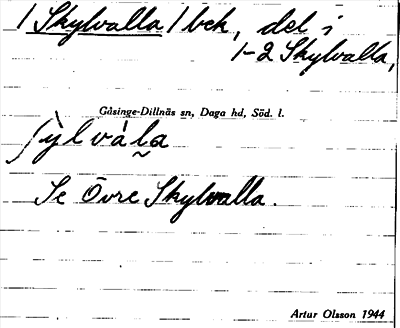 / Skylvalla / bek, del i
1-2 Skylvalla,
Gåsinge-Dillnäs sn, Daga hd, Söd. l.
ʃỳlvála
Se Övre Skylvalla.
Artur Olsson 1944